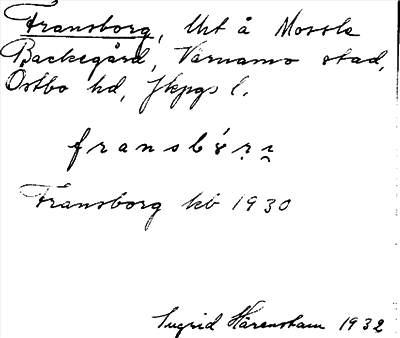 Fransborg, Urt å Mossle
Backegård, Värnamo stad,
Östbo hd, Jkpgs l.
fransbo̍r̥ı̥
Fransborg kb 1930
Ingrid Härenstam 1932